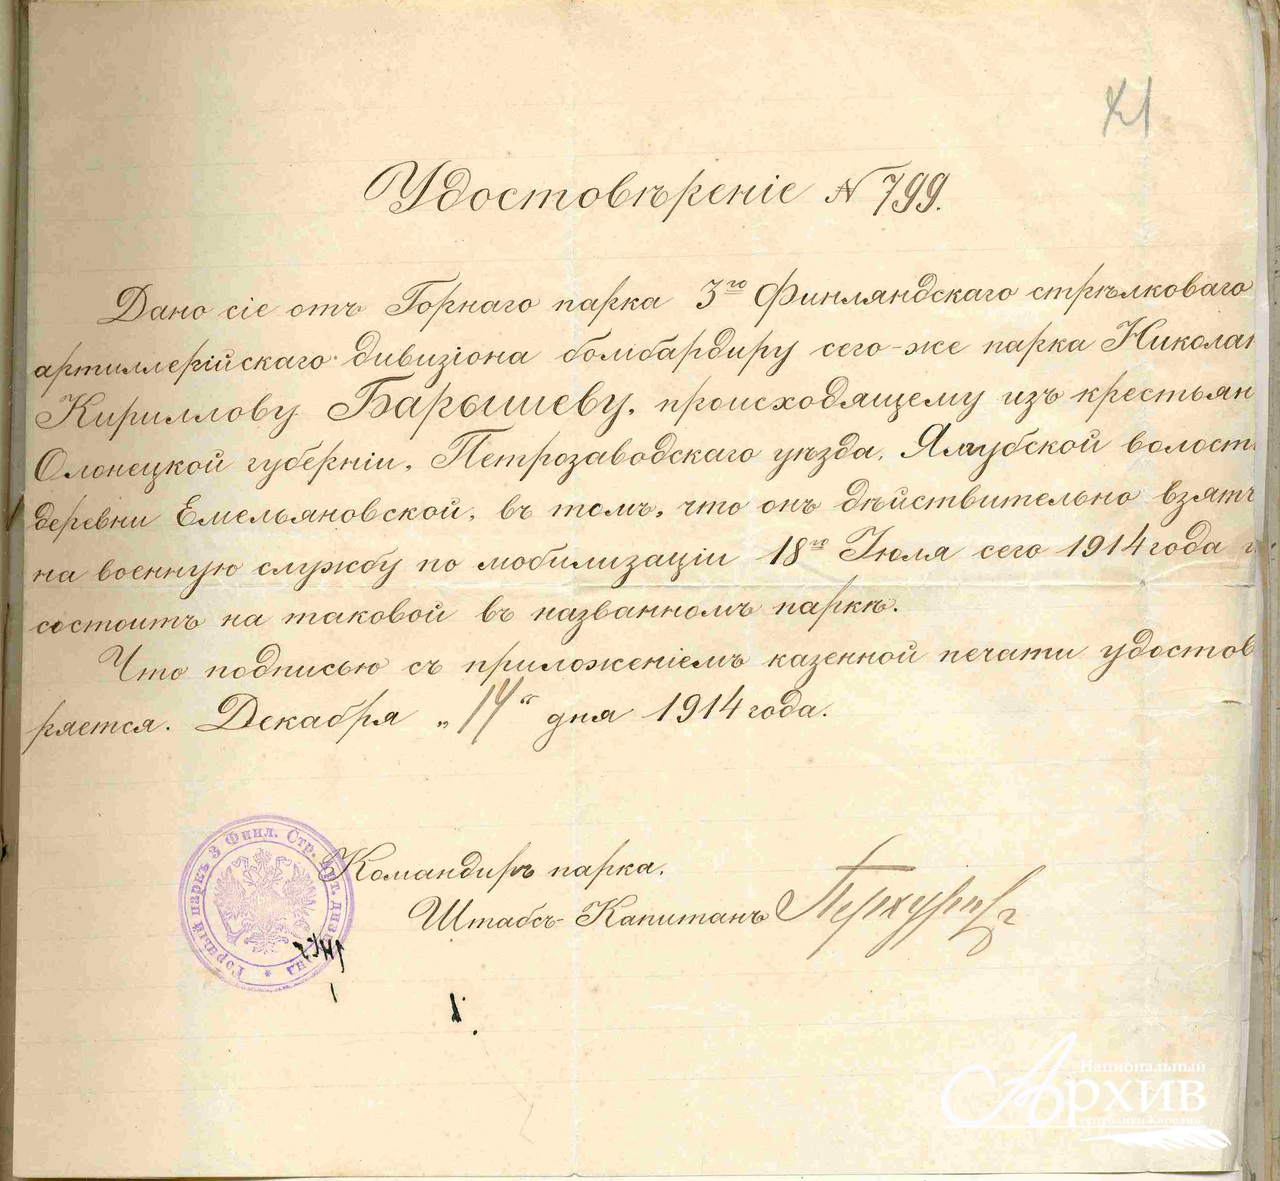 Удостовѣреніе № 799.
Дано сіе отъ Горнаго парка 3го Финляндскаго стрѣлковаго
артиллерійскаго дивизіона бомбардиру сего-же парка Никола
Кириллову Барышеву, происходящему изъ крестьян
Олонецкой губерніи, Петрозаводскаго уѣзда, Ялгубской волост
деревни Емельяновской, въ томъ, что онъ дѣйствительно взятъ
на военную службу по мобилизаціи 18го Іюля сего 1914 года и
состоитъ на таковой въ названномъ паркѣ.
Что подписью съ приложеніемъ казенной печати удостов
ряется. Декабря „14“ дня 1914 года.
Командиръ парка,
Штабсъ-Капитанъ
Горный паркъ 3 Финл. Стр. Арт. див
Национальный
Архив
Республики Карелия